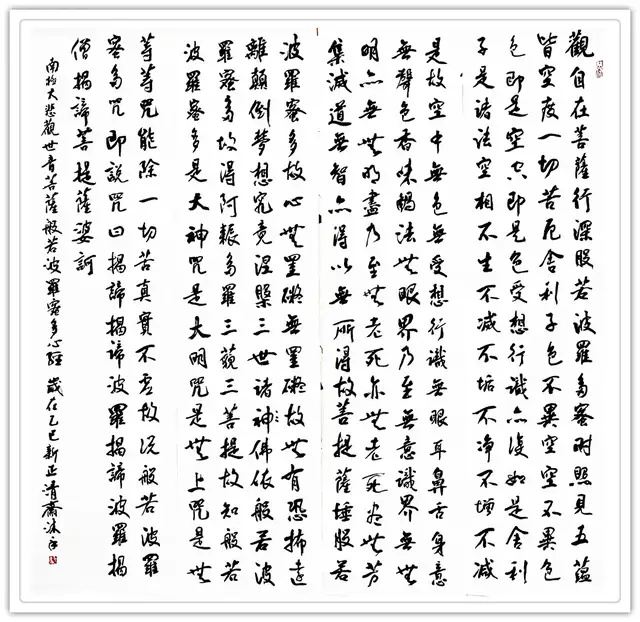 觀自在菩薩行深般若波羅多蜜时照見五蘊
皆空度一切苦厄舍利子色不異空空不異色
色即是空空即是色受想行識亦復如是舍利
子是诸法空相不生不减不垢不净不增不减
是故空中無色無受想行識無眼耳鼻舌身意
無聲色香味觸法無眼界乃至無意識界無無
明亦無無明盡乃至無老死亦無老死盡無苦
集滅道無智亦得以無所得故菩提薩埵般若
波羅蜜多故心無罣礙無罣礙故無有恐怖遠
離顛倒夢想究竟涅槃三世诸神佛依般若波
羅蜜多故得阿耨多羅三藐三菩提故知般若
波羅蜜多是大神咒是大明咒是無上咒是無
等等咒能除一切苦真實不虛故说般若波羅
蜜多咒即説咒曰揭諦揭諦波羅揭諦波羅揭
僧揭諦菩提薩婆訶
南無大悲觀世音菩薩般若波羅蜜多心經 歲在乙巳新正清齋沐手